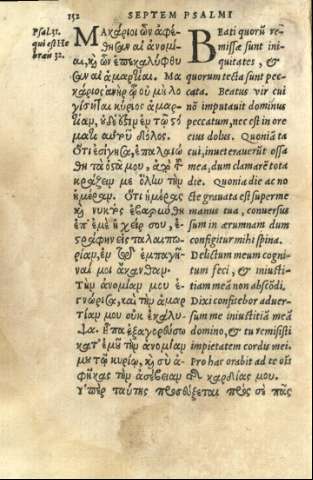 152 SEPTEM PSALMI
Psal. 31.
qui est He
bræu 32.
Μακάριοι ὧν ἀφέ
θησαν αἱ ἀνομί
αι, καὶ ὧν ἐπεκαλύφθη
σαν αἱ ἁμαρτίαι. Μα
κάριος ἀνὴρ ᾧ οὐ μὴ λο
γίσηται κύριος ἁμαρ
τίαν, οὐδὲ ἔστιν ἐν τῷ στό
ματι αὐτοῦ δόλος.
Ὅτι ἐσίγησα, ἐπαλαιώ
θη τὰ ὀστᾶ μου, ἀπὸ τοῦ
κράζειν με ὅλην τὴν
ἡμέραν. Ὅτι ἡμέρας
καὶ νυκτὸς ἐβαρύνθη
ἐπ' ἐμὲ ἡ χείρ σου, ἐ
στράφην εἰς ταλαιπω
ρίαν, ἐν τῷ ἐμπαγῆ
ναί μοι ἄκανθαν.
Τὴν ἀνομίαν μου ἐ
γνώρισα, καὶ τὴν ἁμαρ
τίαν μου οὐκ ἐκάλυ
ψα. Εἶπα ἐξαγορεύσω
κατ' ἐμοῦ τὴν ἀνομίαν
μου τῷ κυρίῳ, καὶ σὺ ἀ
φῆκας τὴν ἀσέβειαν τῆς καρδίας μου.
Ὑπὲρ ταύτης προσεύξεται πρός σε πᾶς
Beati quorũ re
missæ sunt ini
quitates, &
quorum tecta sunt pec
cata. Beatus vir cui
nō imputauit dominus
peccatum, nec est in ore
eius dolus. Quoniã ta
cui, inueterauerūt ossa
mea, dum clamarē tota
die. Quonia die ac no
cte grauata est super me
manus tua, conuersus
sum in ærumnam dum
configitur mihi spina.
Delictum meum cogni
tum feci, & iniusti
tiam meā non abscōdi.
Dixi confitebor aduer
sum me iniustitiã meã
domino, & tu remisisti
impietatem cordis mei.
Pro hac orabit ad te oīs